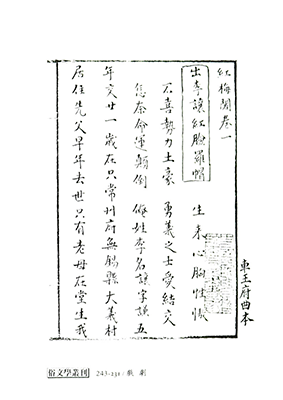 車王府曲本
紅梅閣卷一
出李讓紅臉羅帽 生來心胸性
不喜勢力土豪 勇義之士愛結交
怎奈命運顛倒 俺姓李名讓字謙五
年交廿一歲在只常州府無錫縣大義村
居住先父早年去世只有老母在堂生我
俗文學叢刊 243-231 / 戲劇